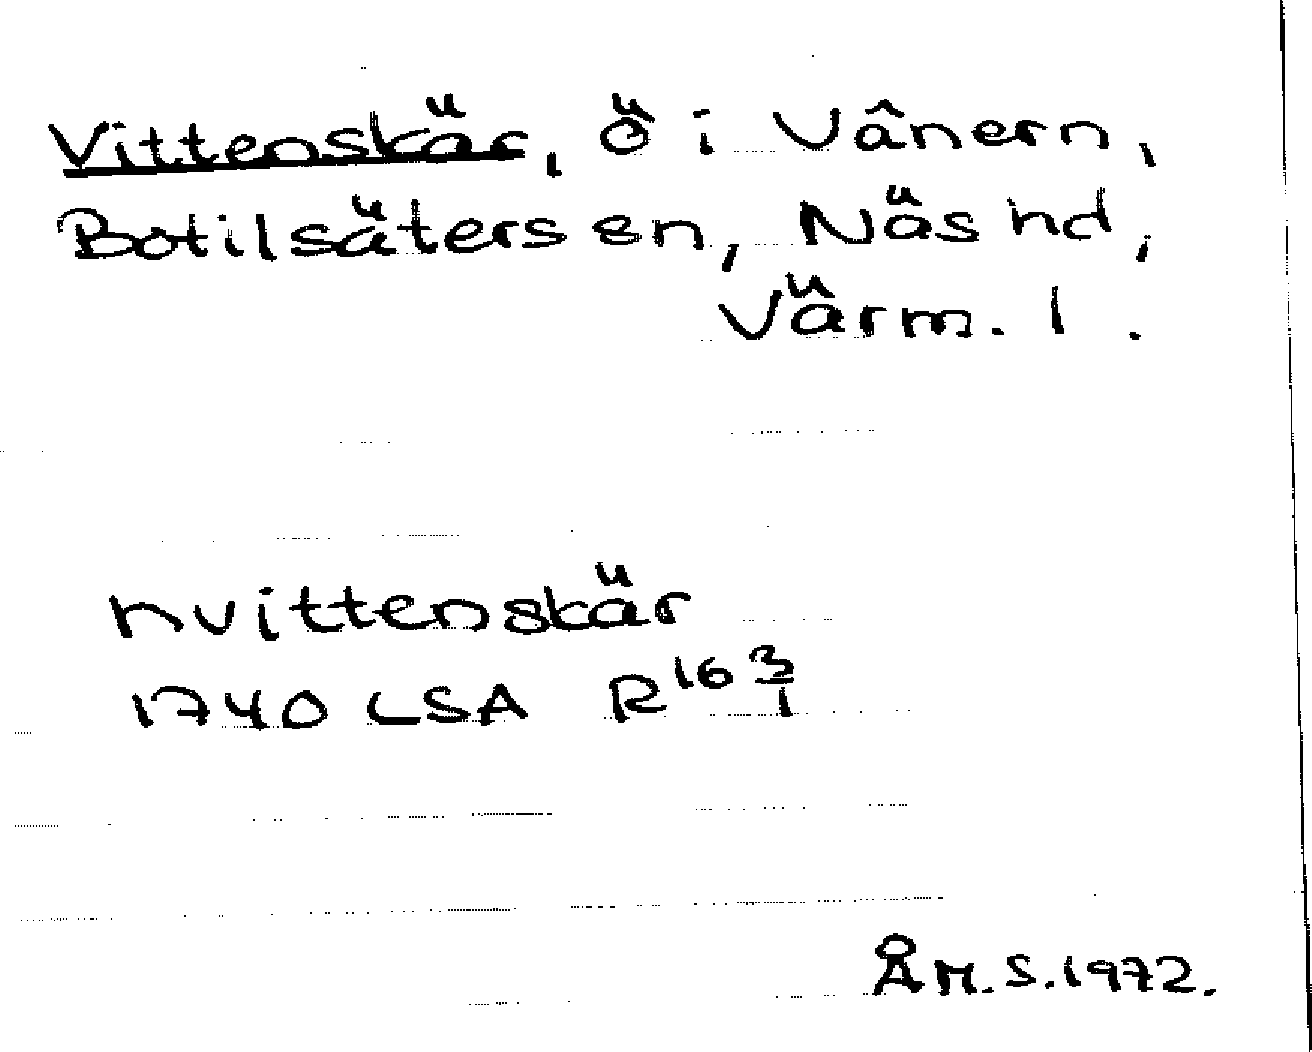 Vittenskär, ö i Vänern,
Botilsäters sn, Näs hd,
Värm. l.
hvittenskär
1740 LSA R¹⁶ 3/1
Å M. S. 1972.